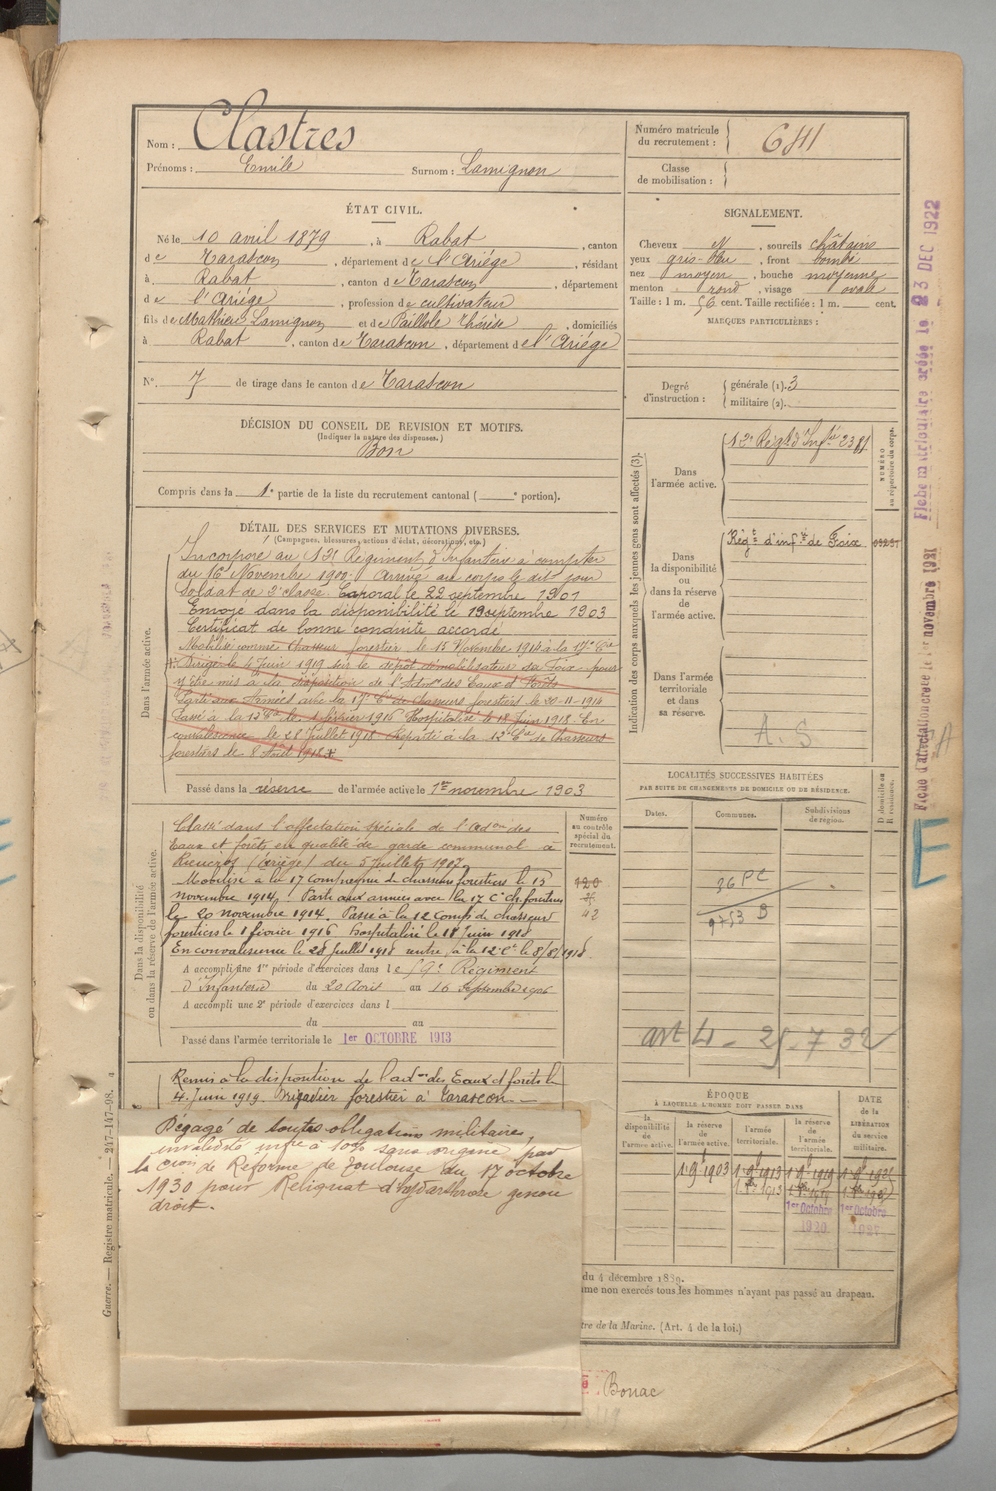 Nom : Clastres
Prénoms : Emile Surnom : Lamignon
Numéro matricule du recrutement : 641
Classe de mobilisation :
ÉTAT CIVIL.
Né le 10 avril 1879, à Rabat, canton
de Tarascon, département de l'Ariége, résidant
à Rabat, canton de Tarascon, département
de l'Ariége, profession de cultivateur
fils de Mathieu Lamignon et de Paillole Thérèse, domiciliés
à Rabat, canton de Tarascon, département de l'Ariége
N° 7 de tirage dans le canton de Tarascon
SIGNALEMENT.
Cheveux N, sourcils châtains
yeux gris-bleu, front bombé
nez moyen, bouche moyenne
menton rond, visage ovale
Taille : 1 m. 56 cent. Taille rectifiée : 1 m. cent.
MARQUES PARTICULIÈRES :
Degré d'instruction : générale (1). 3
militaire (2).
DÉCISION DU CONSEIL DE REVISION ET MOTIFS.
(Indiquer la nature des dispenses.)
Bon
Compris dans la 1e partie de la liste du recrutement cantonal ( e portion).
DÉTAIL DES SERVICES ET MUTATIONS DIVERSES.
(Campagnes, blessures, actions d'éclat, décorations, etc.)
Dans l'armée active.
Incorporé au 12e Régiment d'Infanterie à compter
du 16 Novembre 1900. Arrivé au corps le dit jour
Soldat de 2e classe. Caporal le 22 septembre 1901
Envoyé dans la disponibilité le 19 septembre 1903
Certificat de bonne conduite accordé
Mobilisé comme chasseur forestier le 15 Novembre 1914 à la 17e Cie
Dirigé le 4 Juin 1919 sur le dépôt démobilisateur de Foix pour
y être mis à la disposition de l'Adm on des Eaux et Forêts
Parti aux Armées avec la 17e Cie de chasseurs forestiers le 20-11-1914
Passé à la 12e Cie le 1 février 1916 Hospitalisé le 18 Juin 1918 En
convalescence le 28 Juillet 1918 Réparti à la 12e Cie de chasseurs
forestiers le 8 Août 1918
Passé dans la réserve de l'armée active le 1er novembre 1903
Indication des corps auxquels les jeunes gens sont affectés (3).
NUMÉRO au répertoire du corps.
Dans l'armée active.
12e Régt d'Infie 2381
Dans la disponibilité ou dans la réserve de l'armée active.
Régt d'infie de Foix
Dans l'armée territoriale et dans sa réserve.
A. S
LOCALITÉS SUCCESSIVES HABITÉES
PAR SUITE DE CHANGEMENTS DE DOMICILE OU DE RÉSIDENCE.
Dates. Communes. Subdivisions de région. D domicile ou R résidence.
36 PC
9753 B
art 4 - 25-7 32
Dans la disponibilité ou dans la réserve de l'armée active.
Numéro au contrôle spécial du recrutement.
Classé dans l'affectation spéciale de l'Adon des
Eaux et forêts en qualité de garde communal à
Rieucros (Ariége) du 5 Juillet 1907
Mobilisé à la 17 compagnie de chasseurs forestiers le 15
novembre 1914. Parti aux armées avec la 17 Cie ch. forestiers
le 20 novembre 1914. Passé à la 12 Comp de chasseurs
forestiers le 1 février 1916 hospitalisé le 18 Juin 1918
En convalescence le 28 Juillet 1918 rentre à la 12 Cie le 8/8/1918
120
42
A accompli une 1re période d'exercices dans le 59e Régiment
d'Infanterie du 20 Août au 16 Septembre 1906
A accompli une 2e période d'exercices dans l
du au
Passé dans l'armée territoriale le 1er OCTOBRE 1913
Remis à la disposition de l'adon des Eaux et forêts le
4 Juin 1919. Brigadier forestier à Tarascon.
Dégagé de toutes obligations militaires,
invalidité infre à 10% sans origine par
la Cion de Réforme de Toulouse du 17 octobre
1930 pour Reliquat d'hydarthrose genou
droit.
ÉPOQUE À LAQUELLE L'HOMME DOIT PASSER DANS
la disponibilité de l'armée active. la réserve de l'armée active. l'armée territoriale. la réserve de l'armée territoriale. DATE de la LIBÉRATION du service militaire.
1-9-1903 1-9-1913 1-9-1919
1er Octobre 1er Octobre
1920
du 4 décembre 1889.
me non exercés tous les hommes n'ayant pas passé au drapeau.
tre de la Marine. (Art. 4 de la loi.)
Bonac
Guerre. — Registre matricule. — 247-147-98.
Fiche d'affectation créée le 1er novembre 1921
Fiche matriculaire créée le 23 DEC 1922